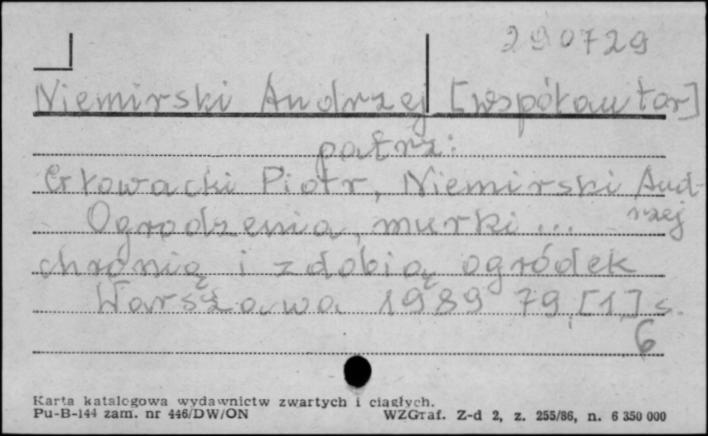 290729
Niemirski Andrzej [współautor]
patrz:
Głowacki Piotr, Niemirski Andrzej
Ogrodzenia, murki ...
chronią i zdobią ogródek
Warszawa 1989 79, [1] s.
6
Karta katalogowa wydawnictw zwartych i ciągłych.
Pu-B-144 zam. nr 446/DW/ON WZGraf. Z-d 2, z. 255/86, n. 6 350 000